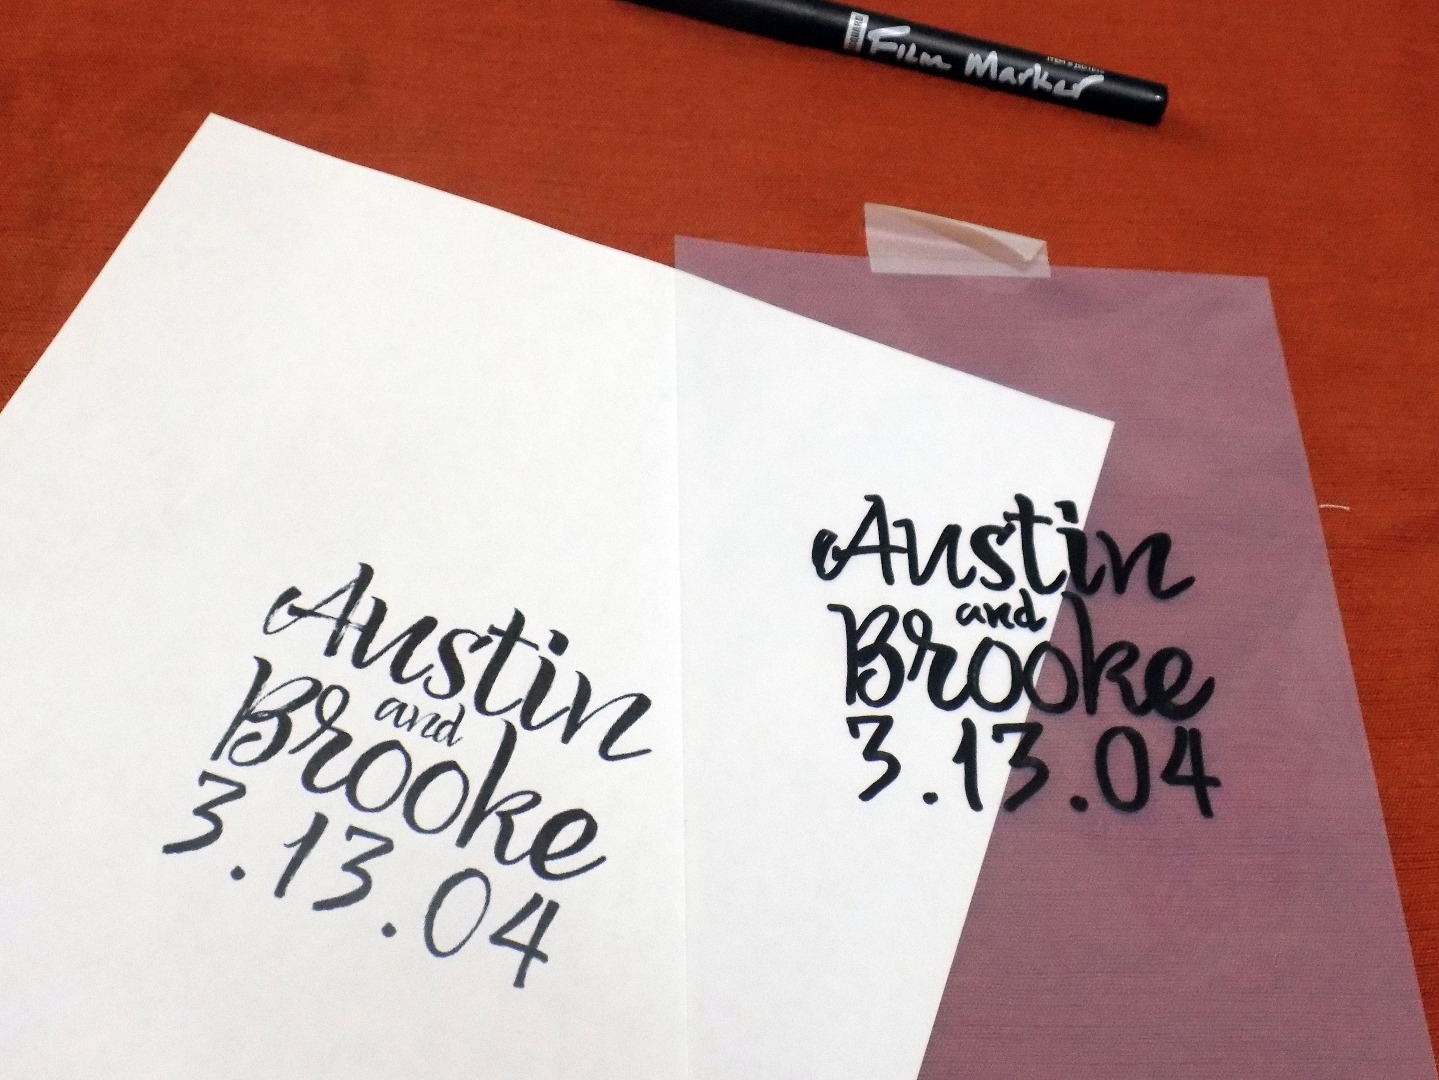 Film Marker
Austin
and
Brooke
3.13.04
Austin
and
Brooke
3.13.04